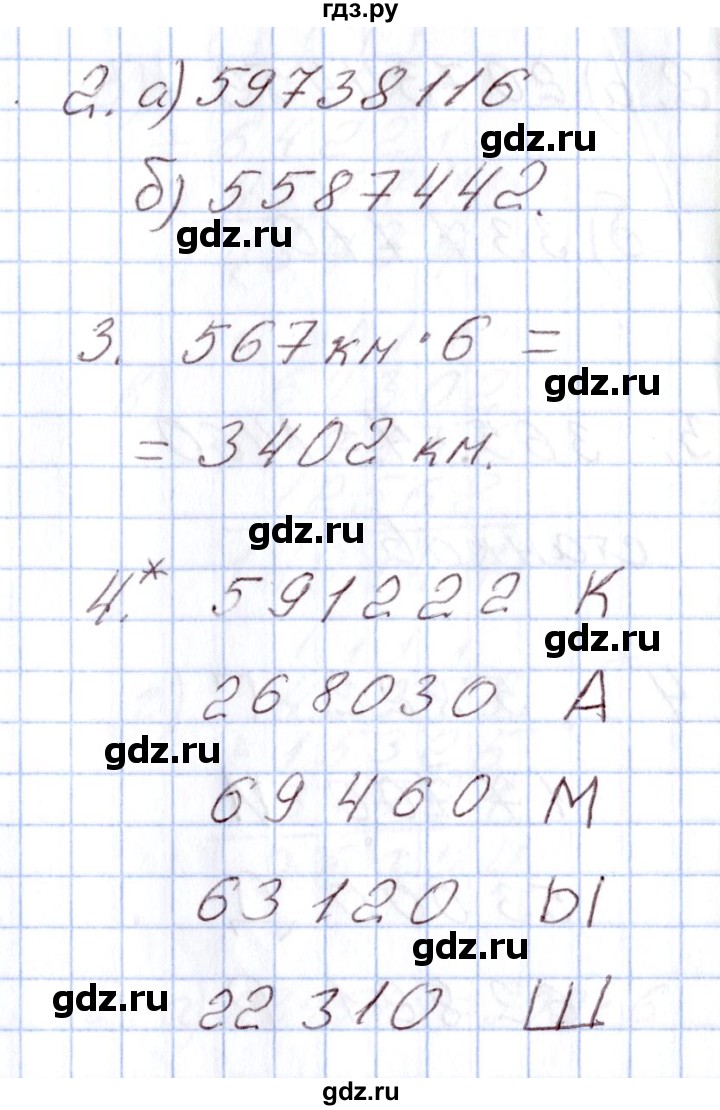 гдз.ру
2. а) 59738116
gdz.ru
б) 5587442.
gdz.ru
3. 567 км · 6 =
gdz.ru
= 3402 км.
gdz.ru
4.* 591222 К
gdz.ru
268030 А
gdz.ru
69460 М
63120 Ы
gdz.ru
gdz.ru
22310 Ш
gdz.ru